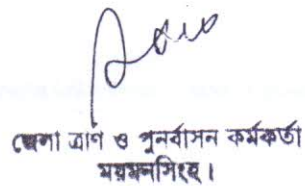 জেলা ত্রাণ ও পুনর্বাসন কর্মকর্তা
ময়মনসিংহ।